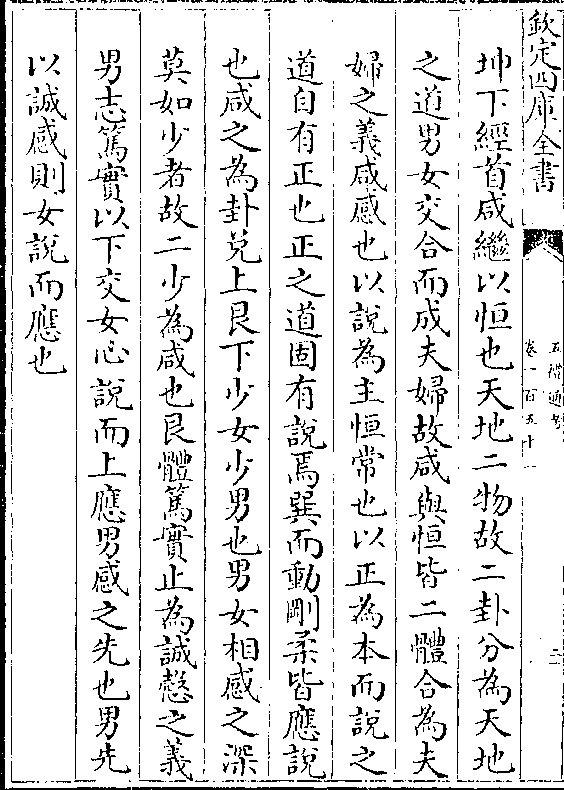 欽定四庫全書
五禮通考
卷一百五十一
二
坤下經首咸繼以恒也天地二物故二卦分為天地
之道男女交合而成夫婦故咸與恒皆二體合為夫
婦之義咸感也以說為主恒常也以正為本而說之
道自有正也正之道固有說焉巽而動剛柔皆應說
也咸之為卦兌上艮下少女少男也男女相感之深
莫如少者故二少為咸也艮體篤實止為誠慤之義
男志篤實以下交女心說而上應男感之先也男先
以誠感則女說而應也